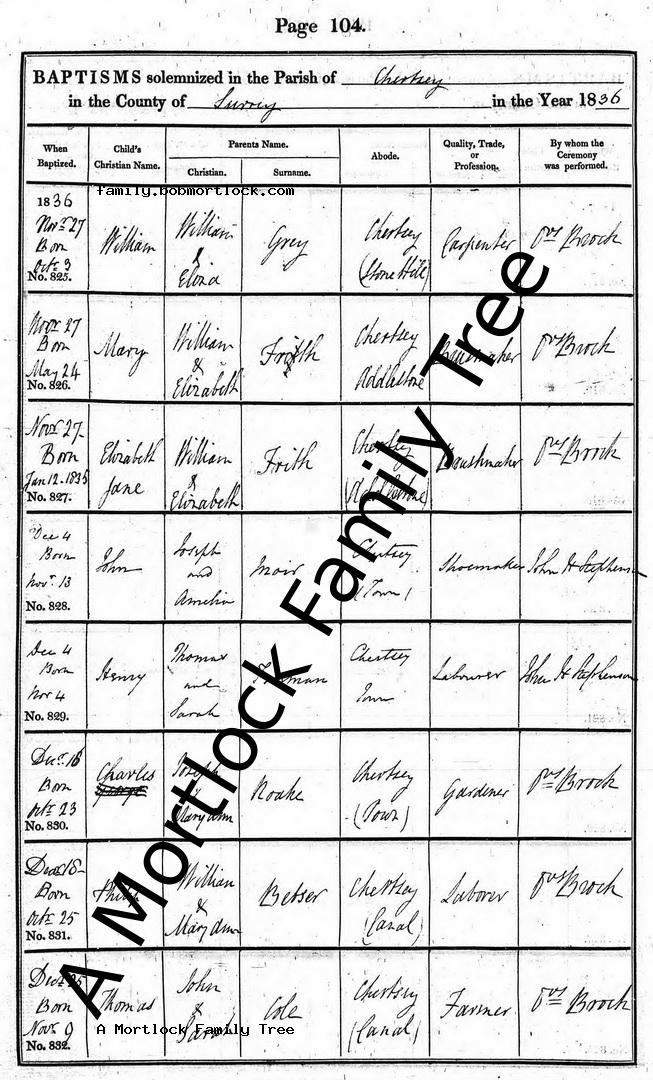 Page 104.
BAPTISMS solemnized in the Parish of Chertsey
in the County of Surrey in the Year 1836
When Baptized. Child's Christian Name. Parents Name. Abode. Quality, Trade, or Profession. By whom the Ceremony was performed.
Christian. Surname.
family.bobmortlock.com
1836
Novr. 27 Born Octr. 3 William William & Eliza Grey Chertsey (Stone Hill) Carpenter Ows Brock
No. 825.
Novr 27 Born May 24 Mary William & Elizabeth Frith Chertsey Addlestone Ows Brock
No. 826.
Novr 27 Born Jan 12. 1835 Elizabeth Jane William & Elizabeth Frith Chertsey (Addlestone) Ows Brock
No. 827.
Dec 4 Born Novr. 13 John Joseph and Amelia Chertsey (Town) Shoemaker John H Stephenson
No. 828.
Dec 4 Born Nov 4 Henry Thomas and Sarah Chertsey Town Labourer John H Stephenson
No. 829.
Decr. 18 Born Octr 23 Charles Joseph & Mary Ann Noake Chertsey (Town) Gardener Ows Brock
No. 830.
Decr 18 Born Octr 25 Philip William & Mary Ann Betser Chertsey (Canal) Laborer Ows Brock
No. 831.
Decr 25 Born Novr. 9 Thomas John & Sarah Cole Chertsey (Canal) Farmer Ows Brock
No. 832.
A Mortlock Family Tree
A Mortlock Family Tree